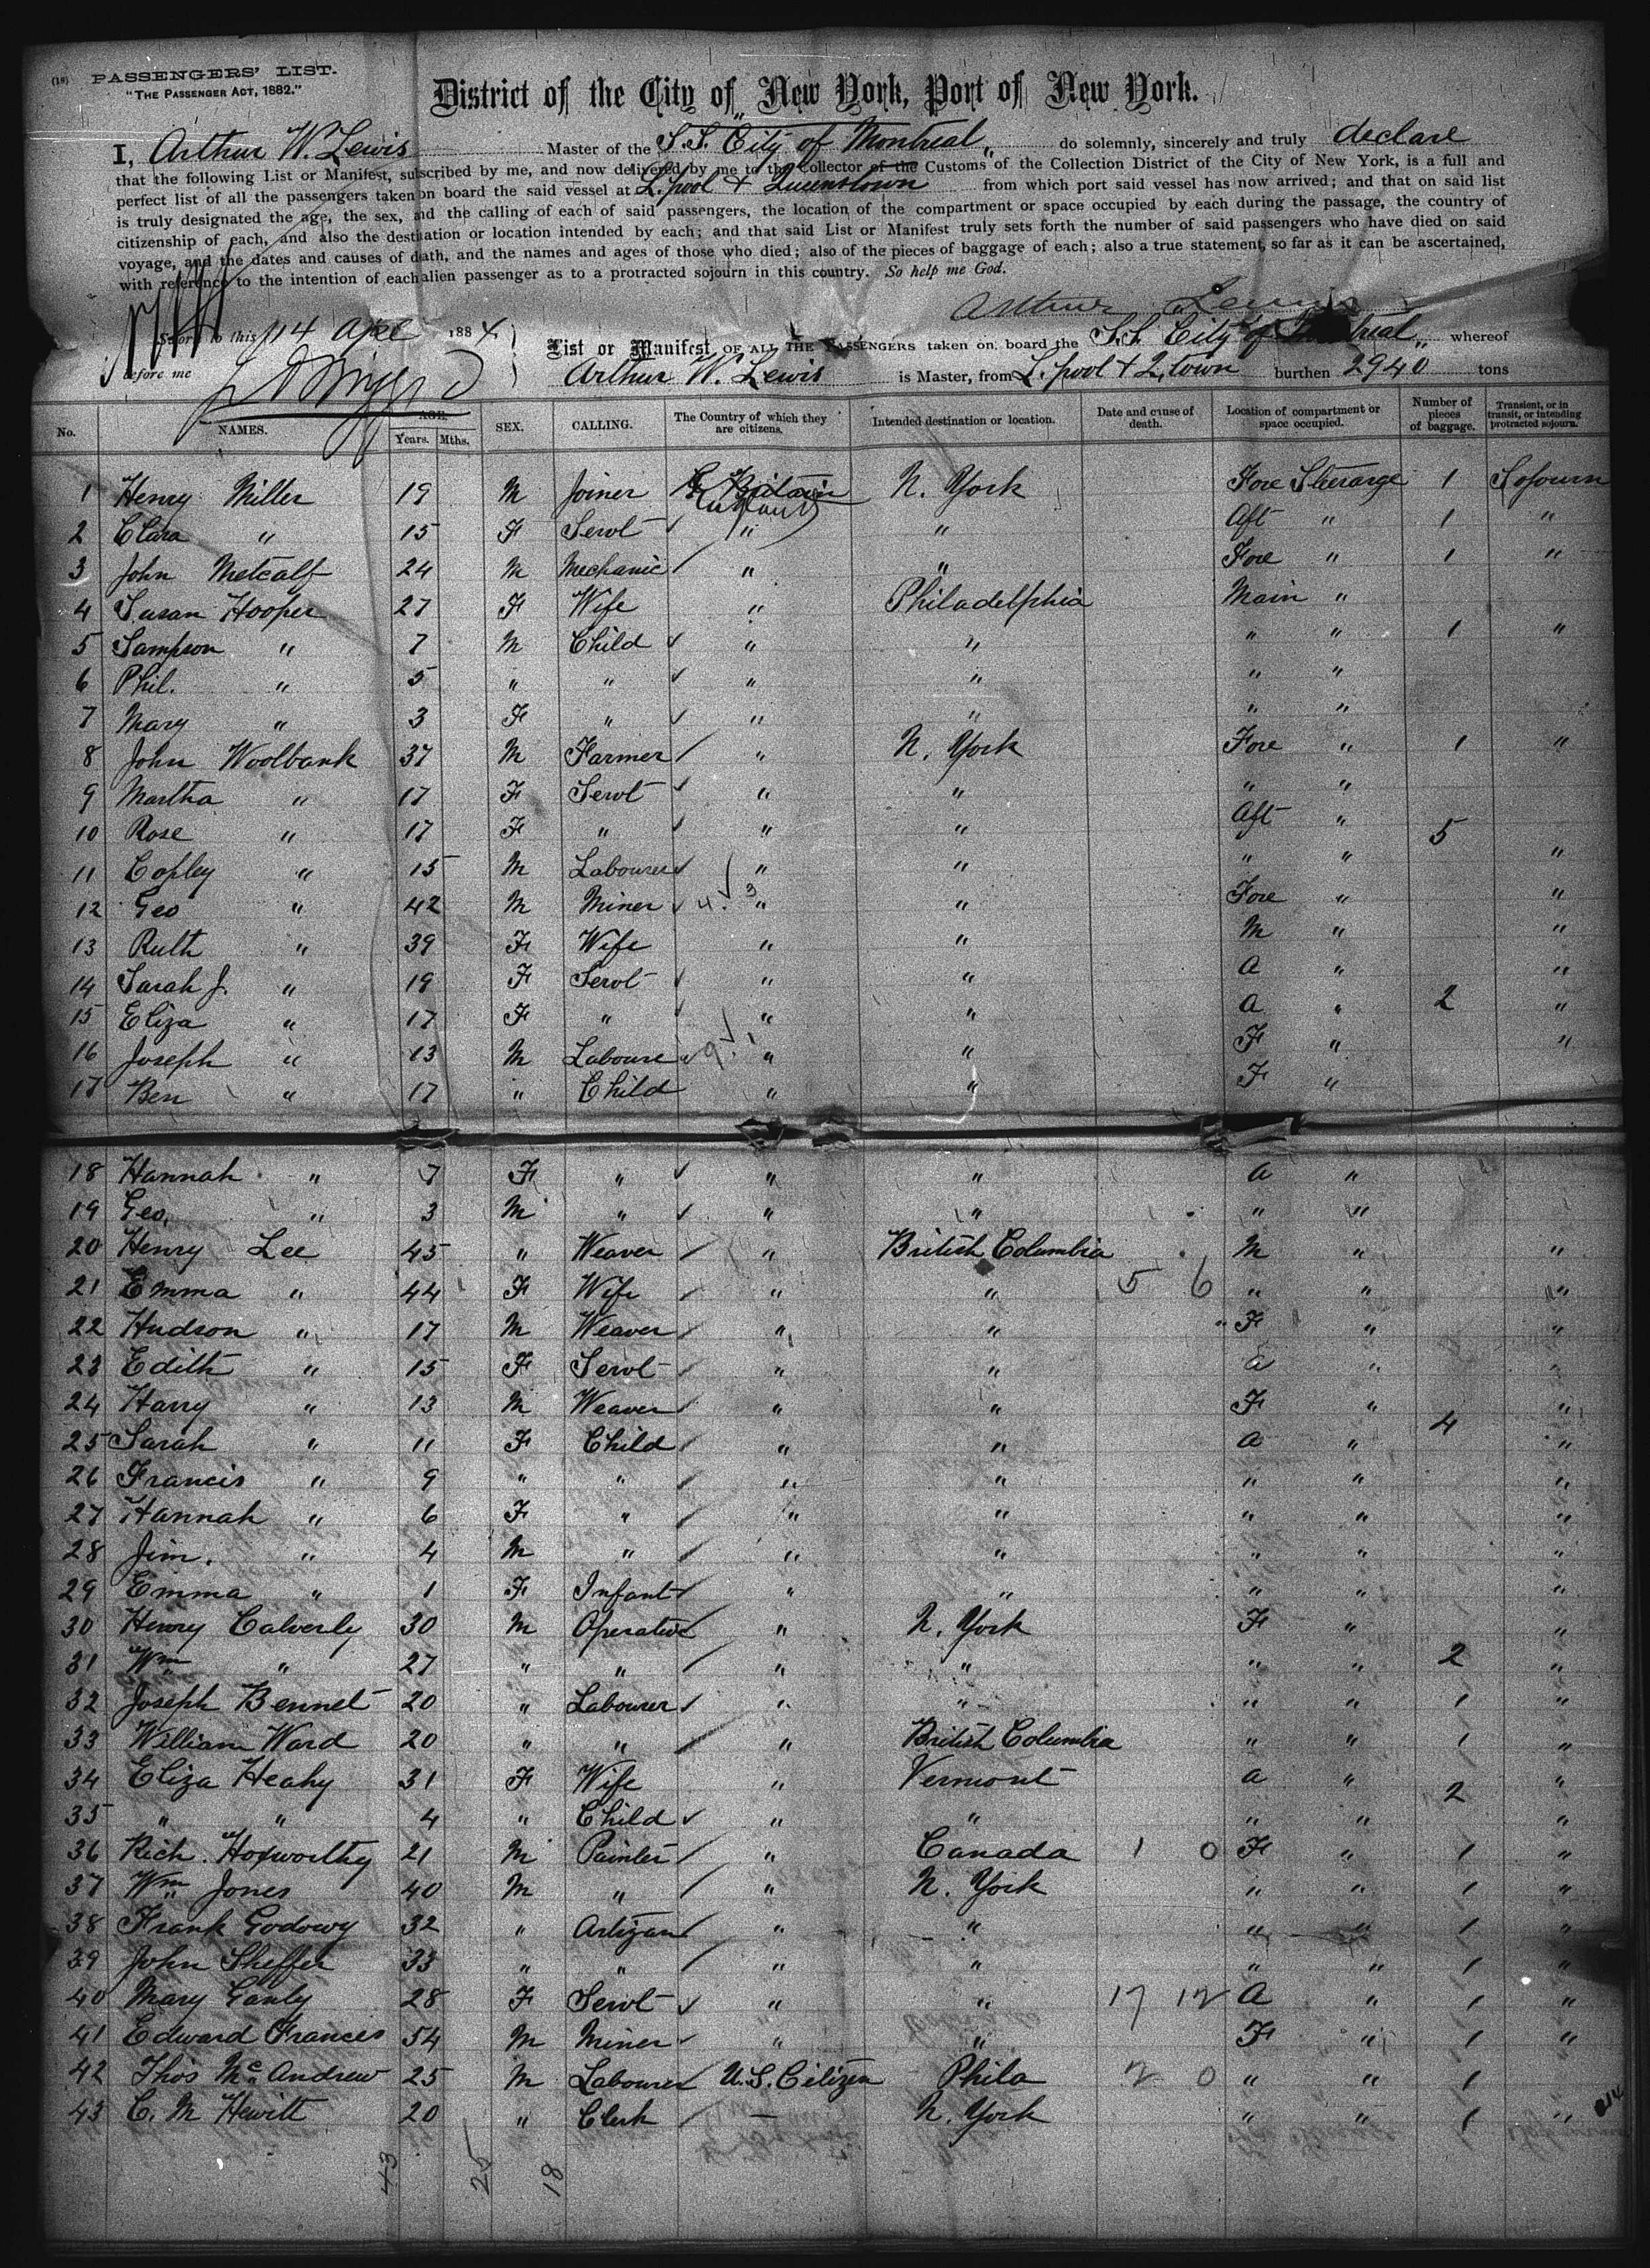 (18) PASSENGERS' LIST.
"THE PASSENGER ACT, 1882."
District of the City of New York, Port of New York.
I, Arthur W. Lewis Master of the S.S. City of Montreal do solemnly, sincerely and truly declare
that the following List or Manifest, subscribed by me, and now delivered by me to the Collector of the Customs of the Collection District of the City of New York, is a full and
perfect list of all the passengers taken on board the said vessel at L.pool & Queenstown from which port said vessel has now arrived; and that on said list
is truly designated the age, the sex, and the calling of each of said passengers, the location of the compartment or space occupied by each during the passage, the country of
citizenship of each, and also the destination or location intended by each; and that said List or Manifest truly sets forth the number of said passengers who have died on said
voyage, and the dates and causes of death, and the names and ages of those who died; also of the pieces of baggage of each; also a true statement, so far as it can be ascertained,
with reference to the intention of each alien passenger as to a protracted sojourn in this country. So help me God.
Arthur Lewis
Sworn to this 14 Apl 1884
before me
List or Manifest OF ALL THE PASSENGERS taken on board the S.S. City of Montreal whereof
Arthur W. Lewis is Master, from L.pool & Q.town burthen 2940 tons
No. NAMES. AGE. Years. Mths. SEX. CALLING. The Country of which they are citizens. Intended destination or location. Date and cause of death. Location of compartment or space occupied. Number of pieces of baggage. Transient, or in transit, or intending protracted sojourn.
1 Henry Miller 19 M Joiner G. Britain N. York Fore Steerage 1 Sojourn
2 Clara " 15 F Servt " " Aft " 1 "
3 John Metcalf 24 M Mechanic " " Fore " 1 "
4 Susan Hooper 27 F Wife " Philadelphia Main "
5 Sampson " 7 M Child " " " " 1 "
6 Phil. " 5 " " " " " "
7 Mary " 3 F " " " " "
8 John Woolbank 37 M Farmer " N. York Fore " 1 "
9 Martha " 17 F Servt " " " "
10 Rose " 17 F " " " Aft " 5
11 Copley " 15 M Labourer " " " " "
12 Geo " 42 M Miner 4 3 " " Fore " "
13 Ruth " 39 F Wife " " M " "
14 Sarah J. " 19 F Servt " " A " "
15 Eliza " 17 F " " " A " 2 "
16 Joseph " 13 M Laboure 9 1 " " F " "
17 Ben " 17 " Child " " F "
18 Hannah " 7 F " " " A "
19 Geo. " 3 M " " " " "
20 Henry Lee 45 " Weaver " British Columbia M " "
21 Emma " 44 F Wife " " 5 6 " " "
22 Hudson " 17 M Weaver " " F " "
23 Edith " 15 F Servt " " a " "
24 Harry " 13 M Weaver " " F " "
25 Sarah " 11 F Child " " a " 4 "
26 Francis " 9 " " " " " " "
27 Hannah " 6 F " " " " " "
28 Jim. " 4 M " " " " " "
29 Emma " 1 F Infant " " " " "
30 Henry Calverly 30 M Operative " N. York F " "
31 Wm " 27 " " " " " " 2 "
32 Joseph Bennet 20 " Labourer " " " " 1 "
33 William Ward 20 " " " British Columbia " " 1 "
34 Eliza Heahy 31 F Wife " Vermont a " 2 "
35 " " 4 " Child " " " " "
36 Rich. Hoxworthy 21 M Painter " Canada 1 0 F " 1 "
37 Wm Jones 40 M " " N. York " " 1 "
38 Frank Godowy 32 " Artizan " " " " 1 "
39 John Sheffer 33 " " " " " " 1 "
40 Mary Ganly 28 F Servt " " 17 12 A " 1 "
41 Edward Frances 54 M Miner " " F " 1 "
42 Thos McAndrew 25 M Labourer U.S. Citizen Phila 2 0 " " 1
43 C. M Hewitt 20 " Clerk — N. York " " 1 "
43 25 18